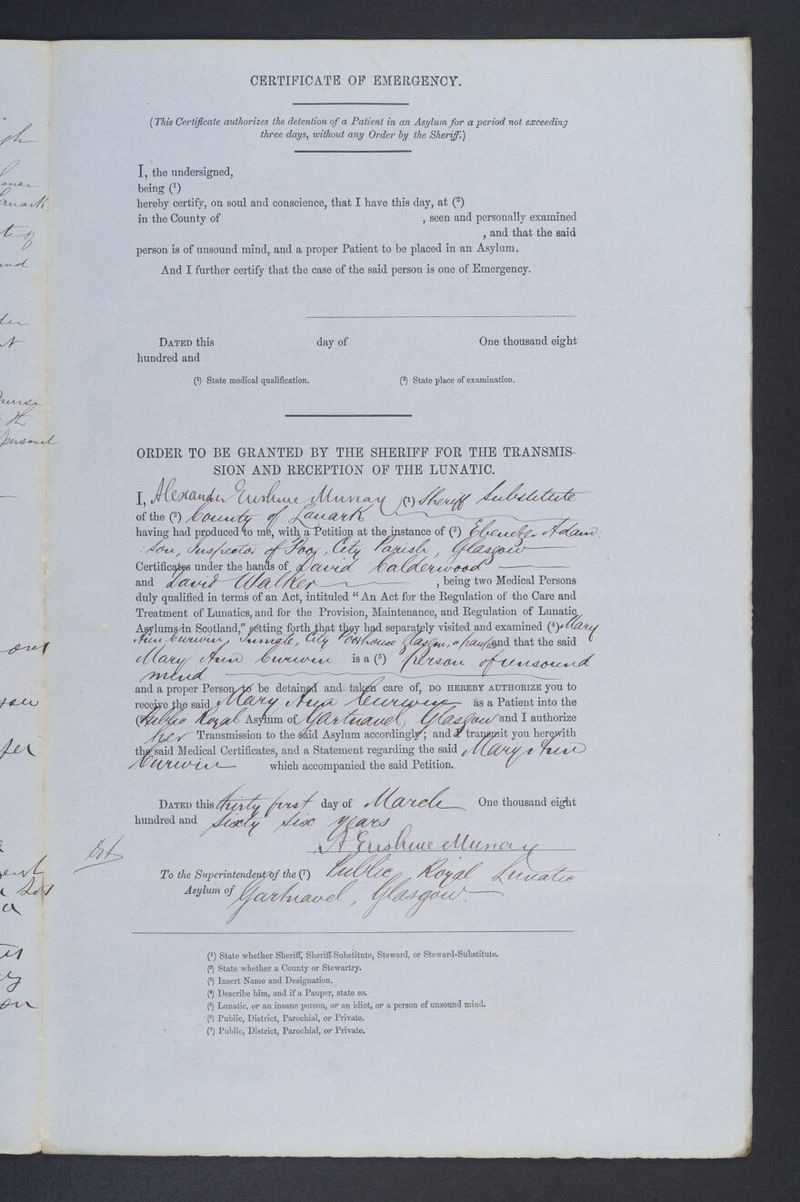 CERTIFICATE OF EMERGENCY.
(This Certificate authorizes the detention of a Patient in an Asylum for a period not exceeding
three days, without any Order by the Sheriff.)
I, the undersigned,
being (¹)
hereby certify, on soul and conscience, that I have this day, at (²)
in the County of , seen and personally examined
, and that the said
person is of unsound mind, and a proper Patient to be placed in an Asylum.
And I further certify that the case of the said person is one of Emergency.
DATED this day of One thousand eight
hundred and
(¹) State medical qualification. (²) State place of examination.
ORDER TO BE GRANTED BY THE SHERIFF FOR THE TRANSMIS-
SION AND RECEPTION OF THE LUNATIC.
I, Alexander Erskine Murray (¹) Sheriff Substitute
of the (²) County of Lanark
having had produced to me, with a Petition at the instance of (³) Ebenezer Adam
son, Inspector of Poor, City Parish, Glasgow
Certificates under the hands of David Calderwood
and David Walker , being two Medical Persons
duly qualified in terms of an Act, intituled “ An Act for the Regulation of the Care and
Treatment of Lunatics, and for the Provision, Maintenance, and Regulation of Lunatic
Asylums in Scotland,” setting forth that they had separately visited and examined (⁴) Mary
Ann Curwen, Inmate, City Poorhouse Glasgow, a pauper and that the said
Mary Ann Curwen is a (⁵) person of unsound
mind
and a proper Person to be detained and taken care of, DO HEREBY AUTHORIZE you to
receive the said Mary Ann Curwen as a Patient into the
(⁶) Public Royal Asylum of Gartnavel, Glasgow and I authorize
her Transmission to the said Asylum accordingly; and I transmit you herewith
the said Medical Certificates, and a Statement regarding the said Mary Ann
Curwen which accompanied the said Petition.
DATED this thirty first day of March One thousand eight
hundred and sixty six years
A Erskine Murray
To the Superintendent of the (⁷) Public Royal Lunatic
Asylum of Gartnavel, Glasgow.
(¹) State whether Sheriff, Sheriff-Substitute, Steward, or Steward-Substitute.
(²) State whether a County or Stewartry.
(³) Insert Name and Designation.
(⁴) Describe him, and if a Pauper, state so.
(⁵) Lunatic, or an insane person, or an idiot, or a person of unsound mind.
(⁶) Public, District, Parochial, or Private.
(⁷) Public, District, Parochial, or Private.